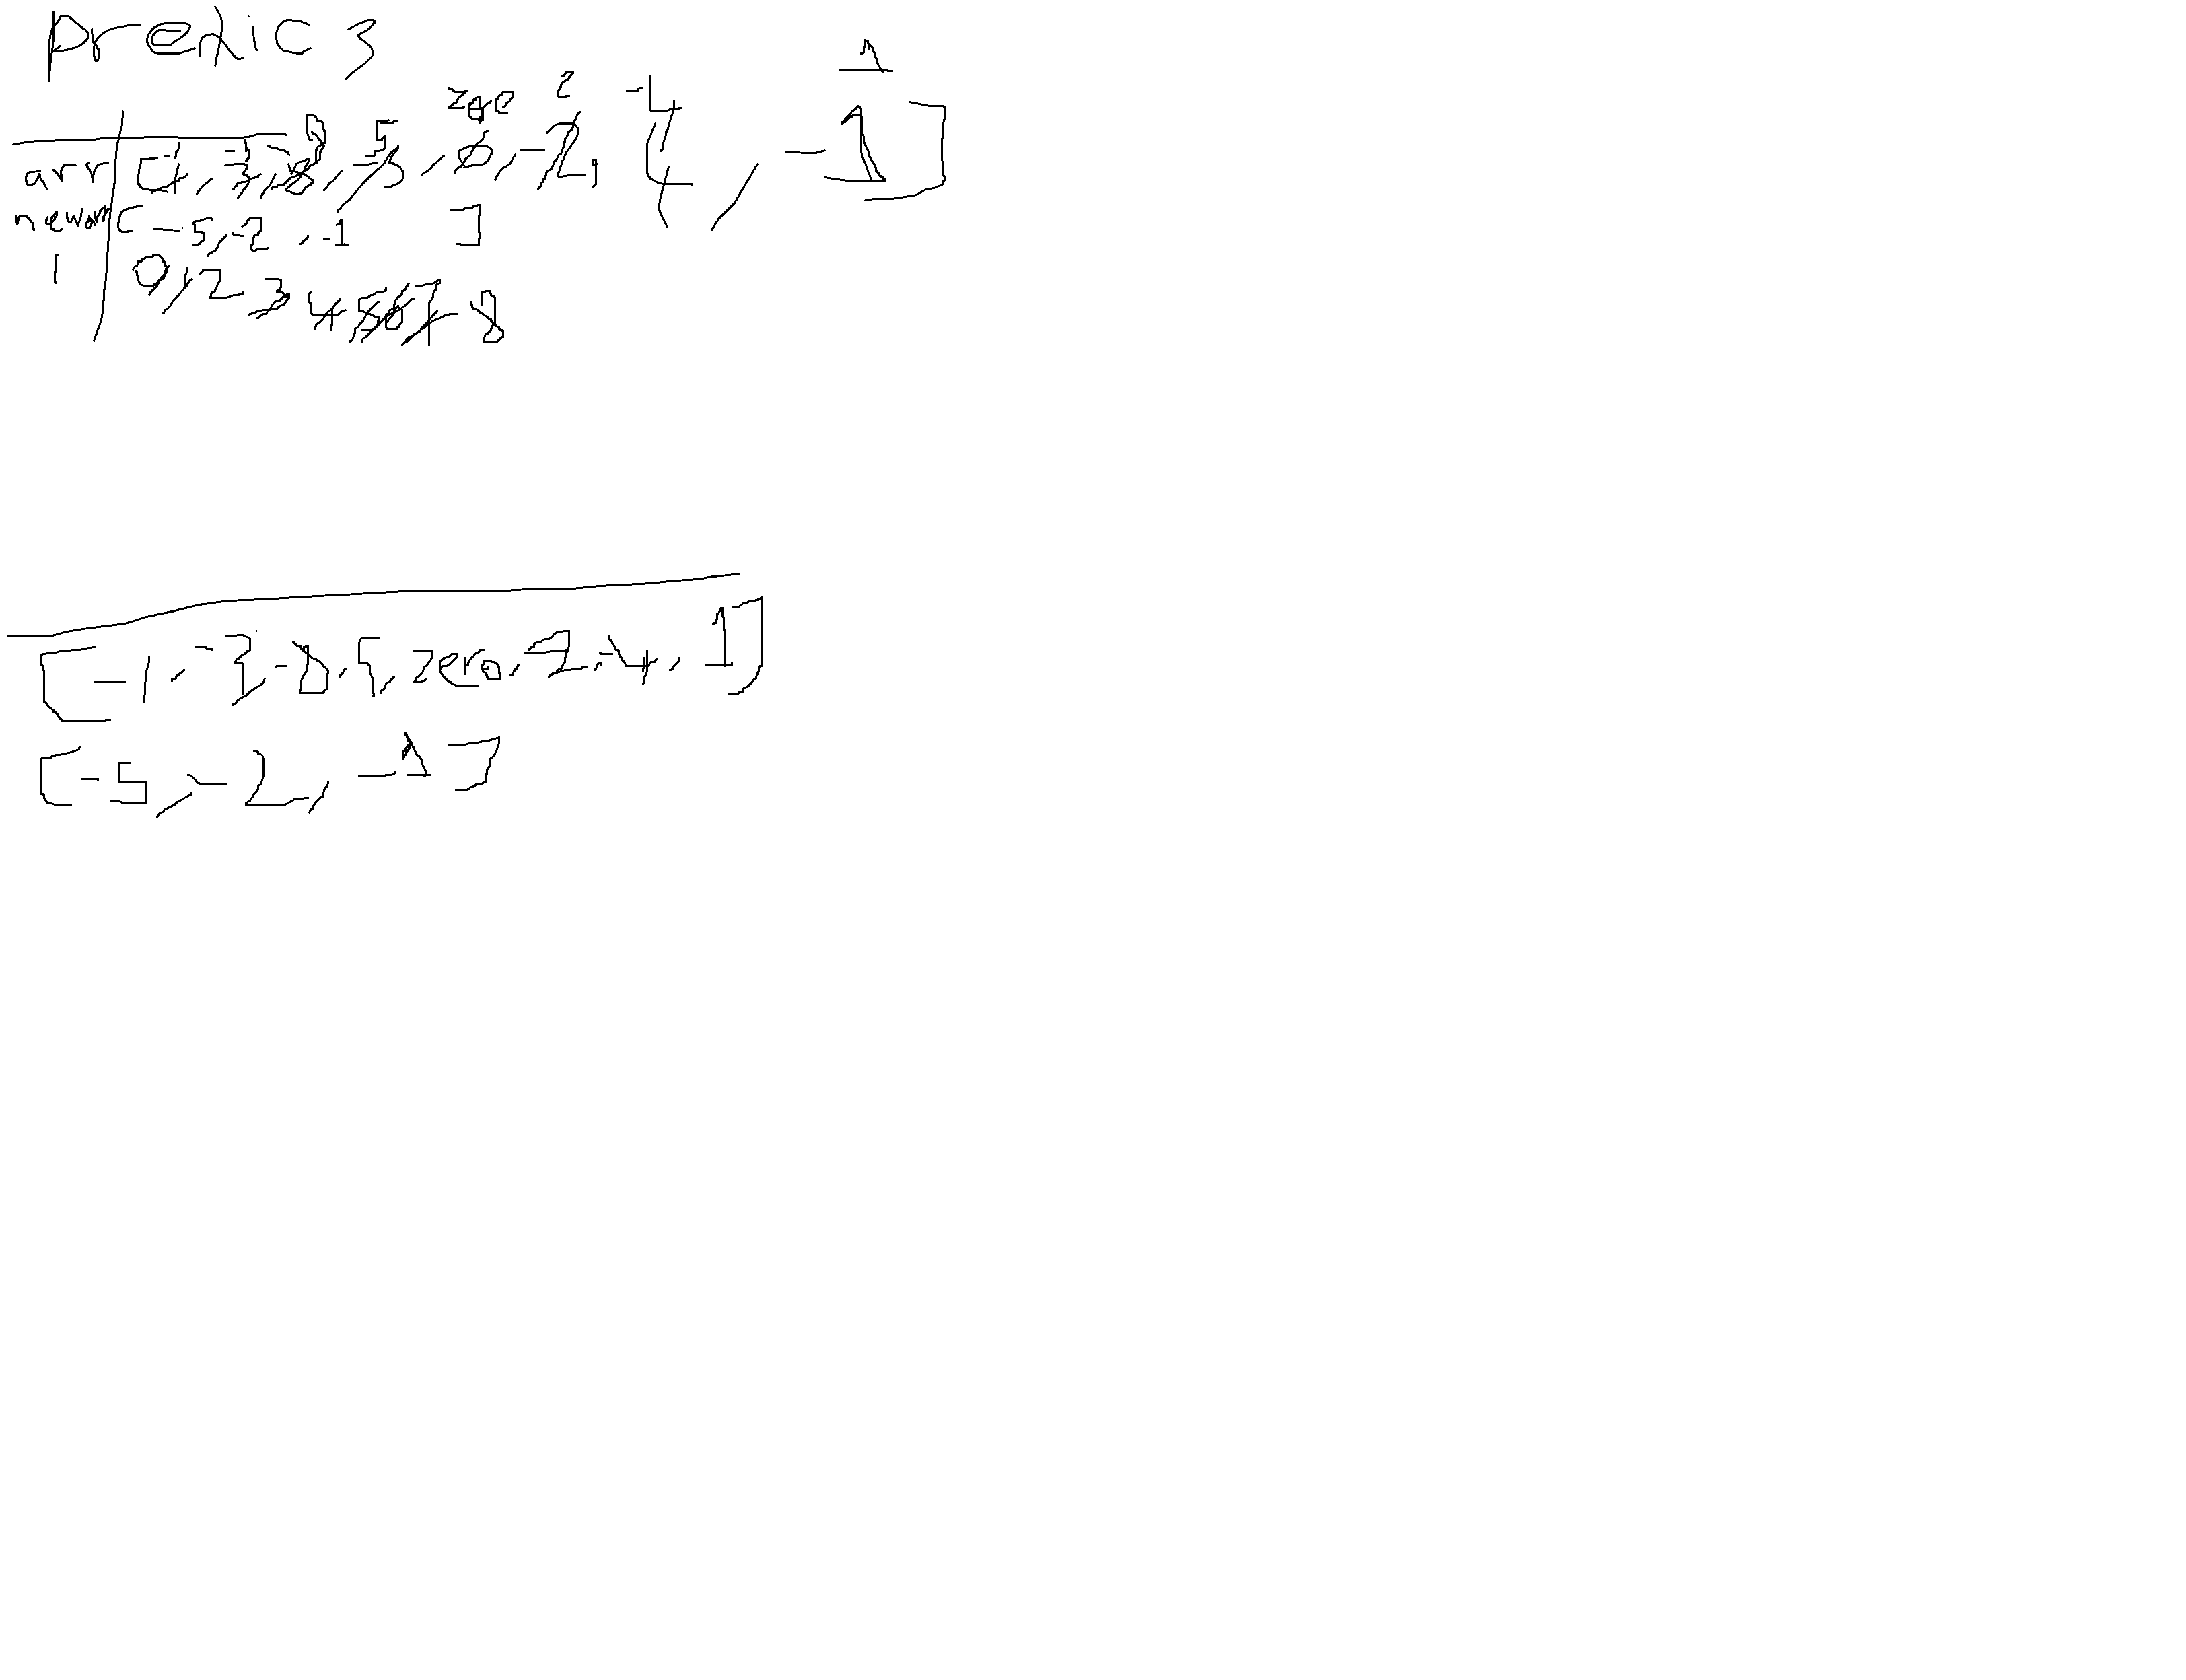 predic 3
zero 2 -4 1
arr [1, 3, 8, -5, 0, -2, 4, -1]
newarr [-5, -2, -1 ]
i 0 1 2 3 4 5 6 7 8
[-1, -3, -8, 5, zero, -2, -4, 1]
[-5, -2, -1]